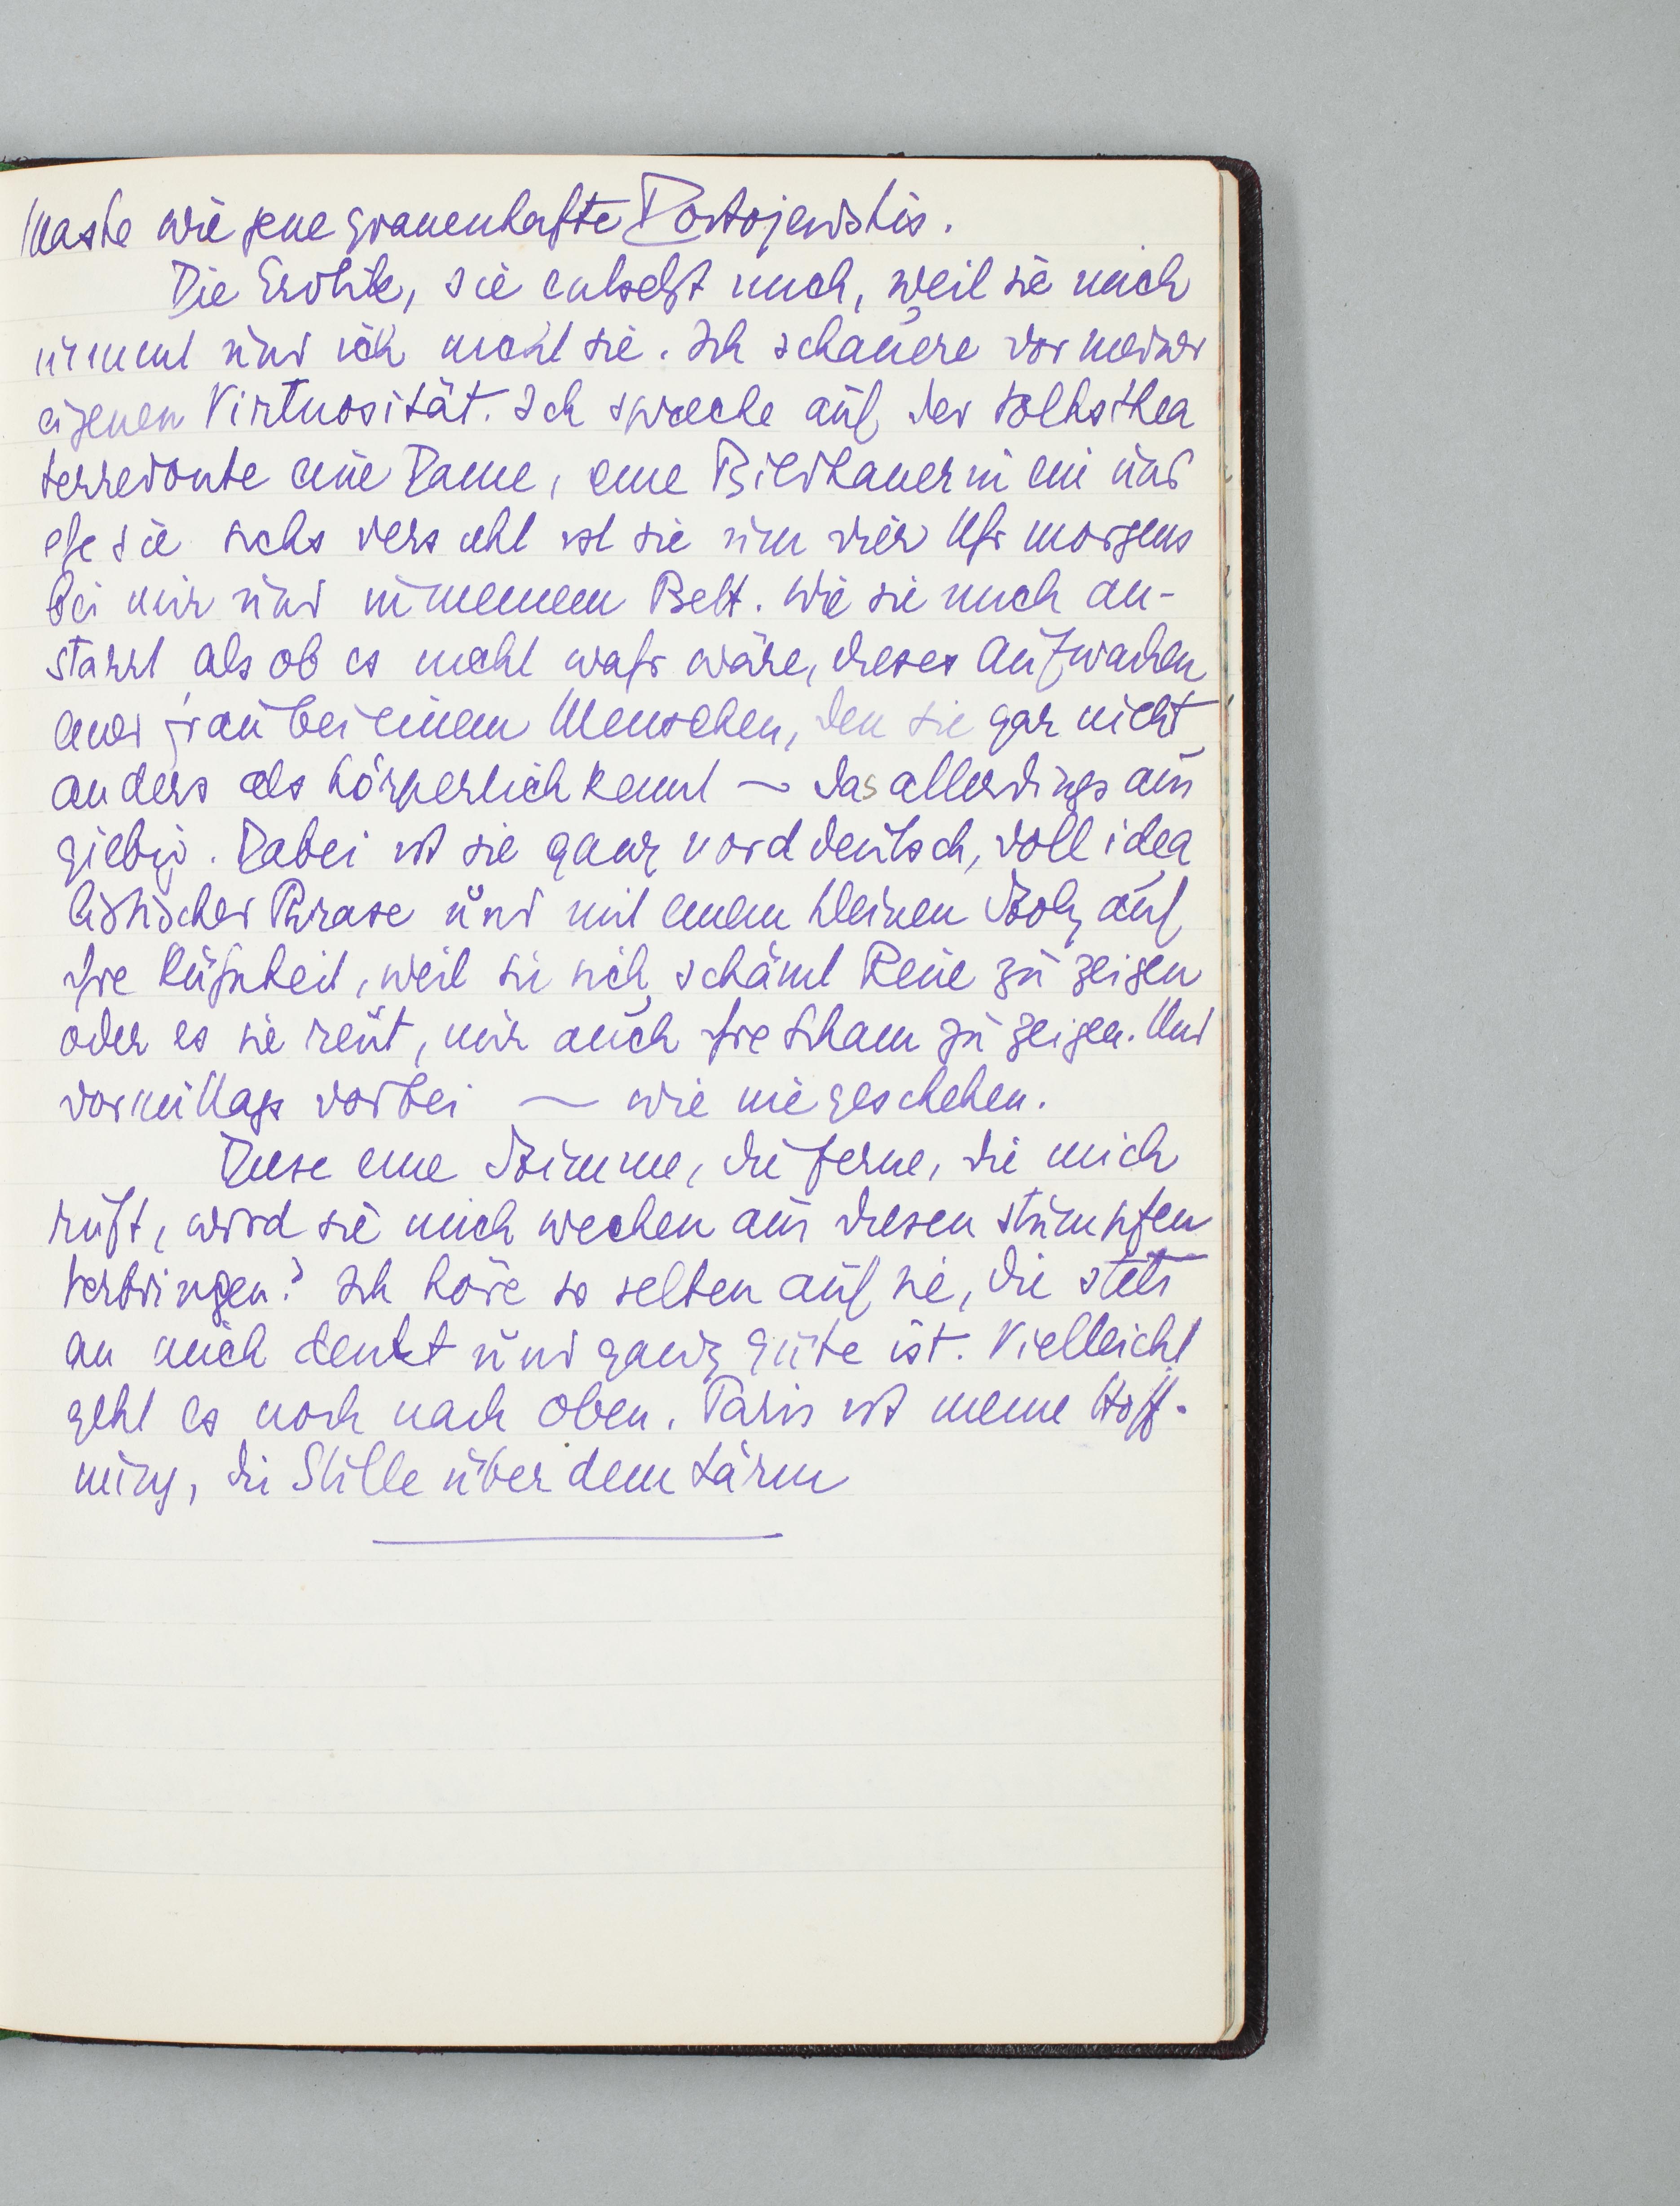 Maske wie jene grauenhafte Dostojewskis.
Die Erotik, sie entsetzt mich, weil sie mich
nimmt und ich nicht sie. Ich schauere vor meiner
eigenen Virtuosität. Ich spreche auf der Volksthea
terredoute eine Dame, eine Bildhauerin an und
ehe sie sichs versieht ist sie um vier Uhr morgens
bei mir und in meinem Bett. Wie sie mich an-
starrt als ob es nicht wahr wäre, dieses Aufwachen
einer Frau bei einem Menschen, den sie gar nicht
anders als körperlich kennt – das allerdings aus
giebig. Dabei ist sie ganz norddeutsch, voll idea
listischer Phrase und mit einem kleinen Stolz auf
ihre Kühnheit, weil sie sich schämt Reue zu zeigen
oder es sie reut, mir auch ihre Scham zu zeigen. Und
vormittags vorbei – wie nie geschehen.
Diese eine Stimme, die ferne, die mich
ruft, wird sie mich wecken aus diesen stumpfen
Verbringen? Ich höre so selten auf sie, die stets
an mich denkt und ganz Güte ist. Vielleicht
geht es noch nach oben. Paris ist meine Hoff-
nung, die Stille über dem Lärm